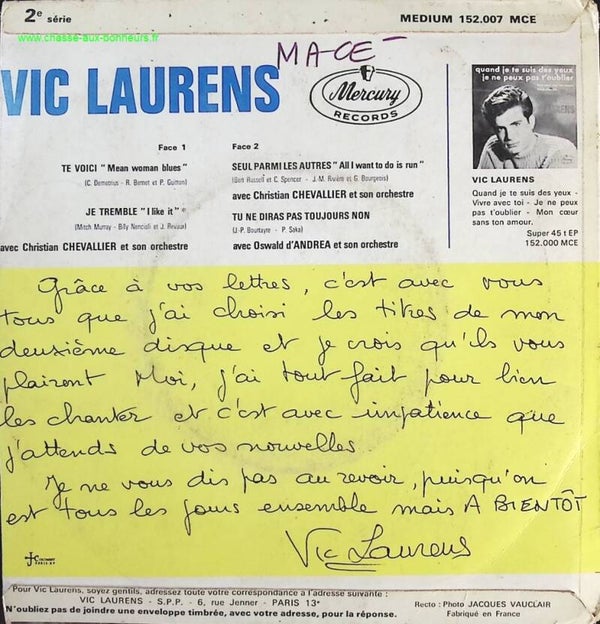 2e série
MEDIUM 152.007 MCE
www.chasse-aux-bonheurs.fr
MACE
VIC LAURENS
Mercury
RECORDS
Face 1
TE VOICI "Mean woman blues"
(C. Demetrius - R. Bernet et P. Guitton)
JE TREMBLE "I like it"
(Mitch Murray - Billy Nencioli et J. Revaux)
avec Christian CHEVALLIER et son orchestre
Face 2
SEUL PARMI LES AUTRES "All I want to do is run"
(Bert Russell et C. Spencer - J.-M. Rivière et G. Bourgeois)
avec Christian CHEVALLIER et son orchestre
TU NE DIRAS PAS TOUJOURS NON
(J.-P. Bourtayre - P. Saka)
avec Oswald d'ANDREA et son orchestre
quand je te suis des yeux
je ne peux pas t'oublier
VIC LAURENS
Quand je te suis des yeux -
Vivre avec toi - Je ne peux
pas t'oublier - Mon cœur
sans ton amour.
Super 45 t EP
152.000 MCE
Grâce à vos lettres, c'est avec vous
tous que j'ai choisi les titres de mon
deuxième disque et je crois qu'ils vous
plairont Moi, j'ai tout fait pour bien
les chanter et c'est avec impatience que
j'attends de vos nouvelles.
Je ne vous dis pas au revoir, puisqu'on
est tous les jours ensemble mais A BIENTÔT
Vic Laurens
Pour Vic Laurens, soyez gentils, adressez toute votre correspondance à l'adresse suivante :
VIC LAURENS - S.P.P. - 6, rue Jenner - PARIS 13e
N'oubliez pas de joindre une enveloppe timbrée, avec votre adresse, pour la réponse.
Recto : Photo JACQUES VAUCLAIR
Fabriqué en France